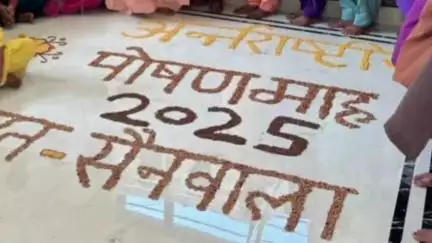 अन्तराष्ट्रीय
पोषण माह
2025
त - सैनवाला